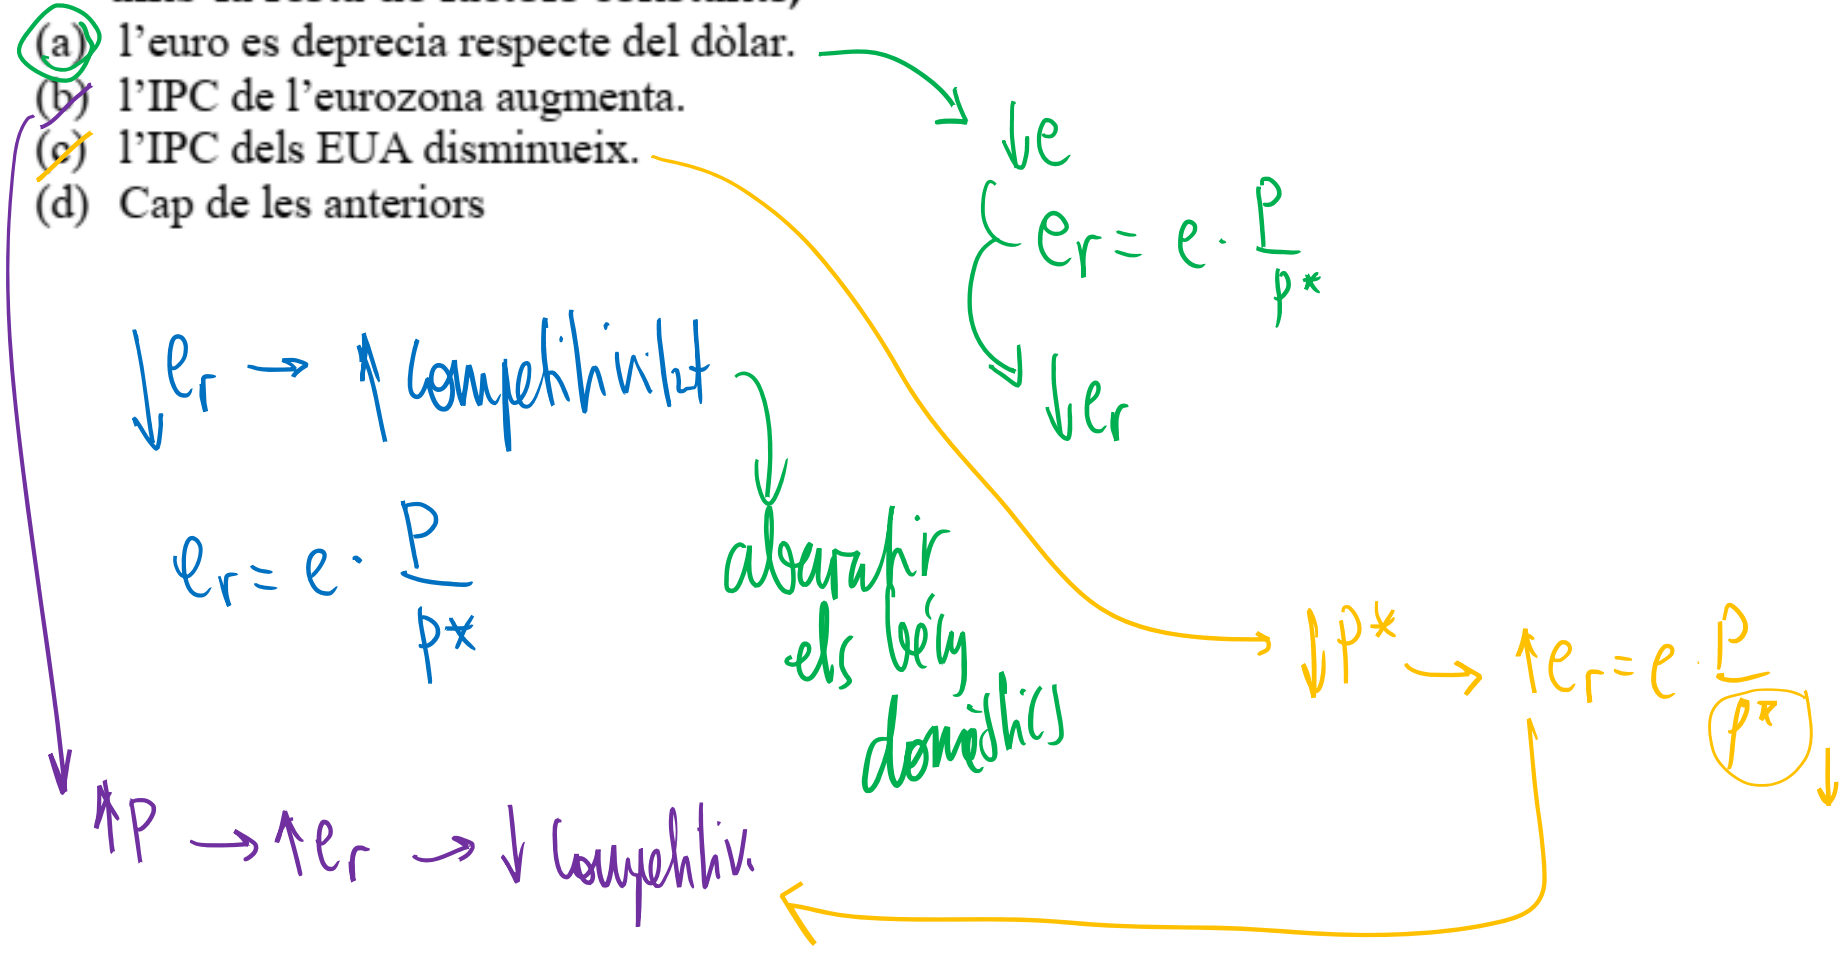 amb la resta de factors constants,
(a) l'euro es deprecia respecte del dòlar.
(b) l'IPC de l'eurozona augmenta.
(c) l'IPC dels EUA disminueix.
(d) Cap de les anteriors
↓e
er = e · P/P*
↓er
↓er → ↑ competitivitat
er = e · P/P*
abaratir
els béns
domèstics
↓P* → ↑er = e · P/P* ↓
↑P → ↑er → ↓ competitiv.